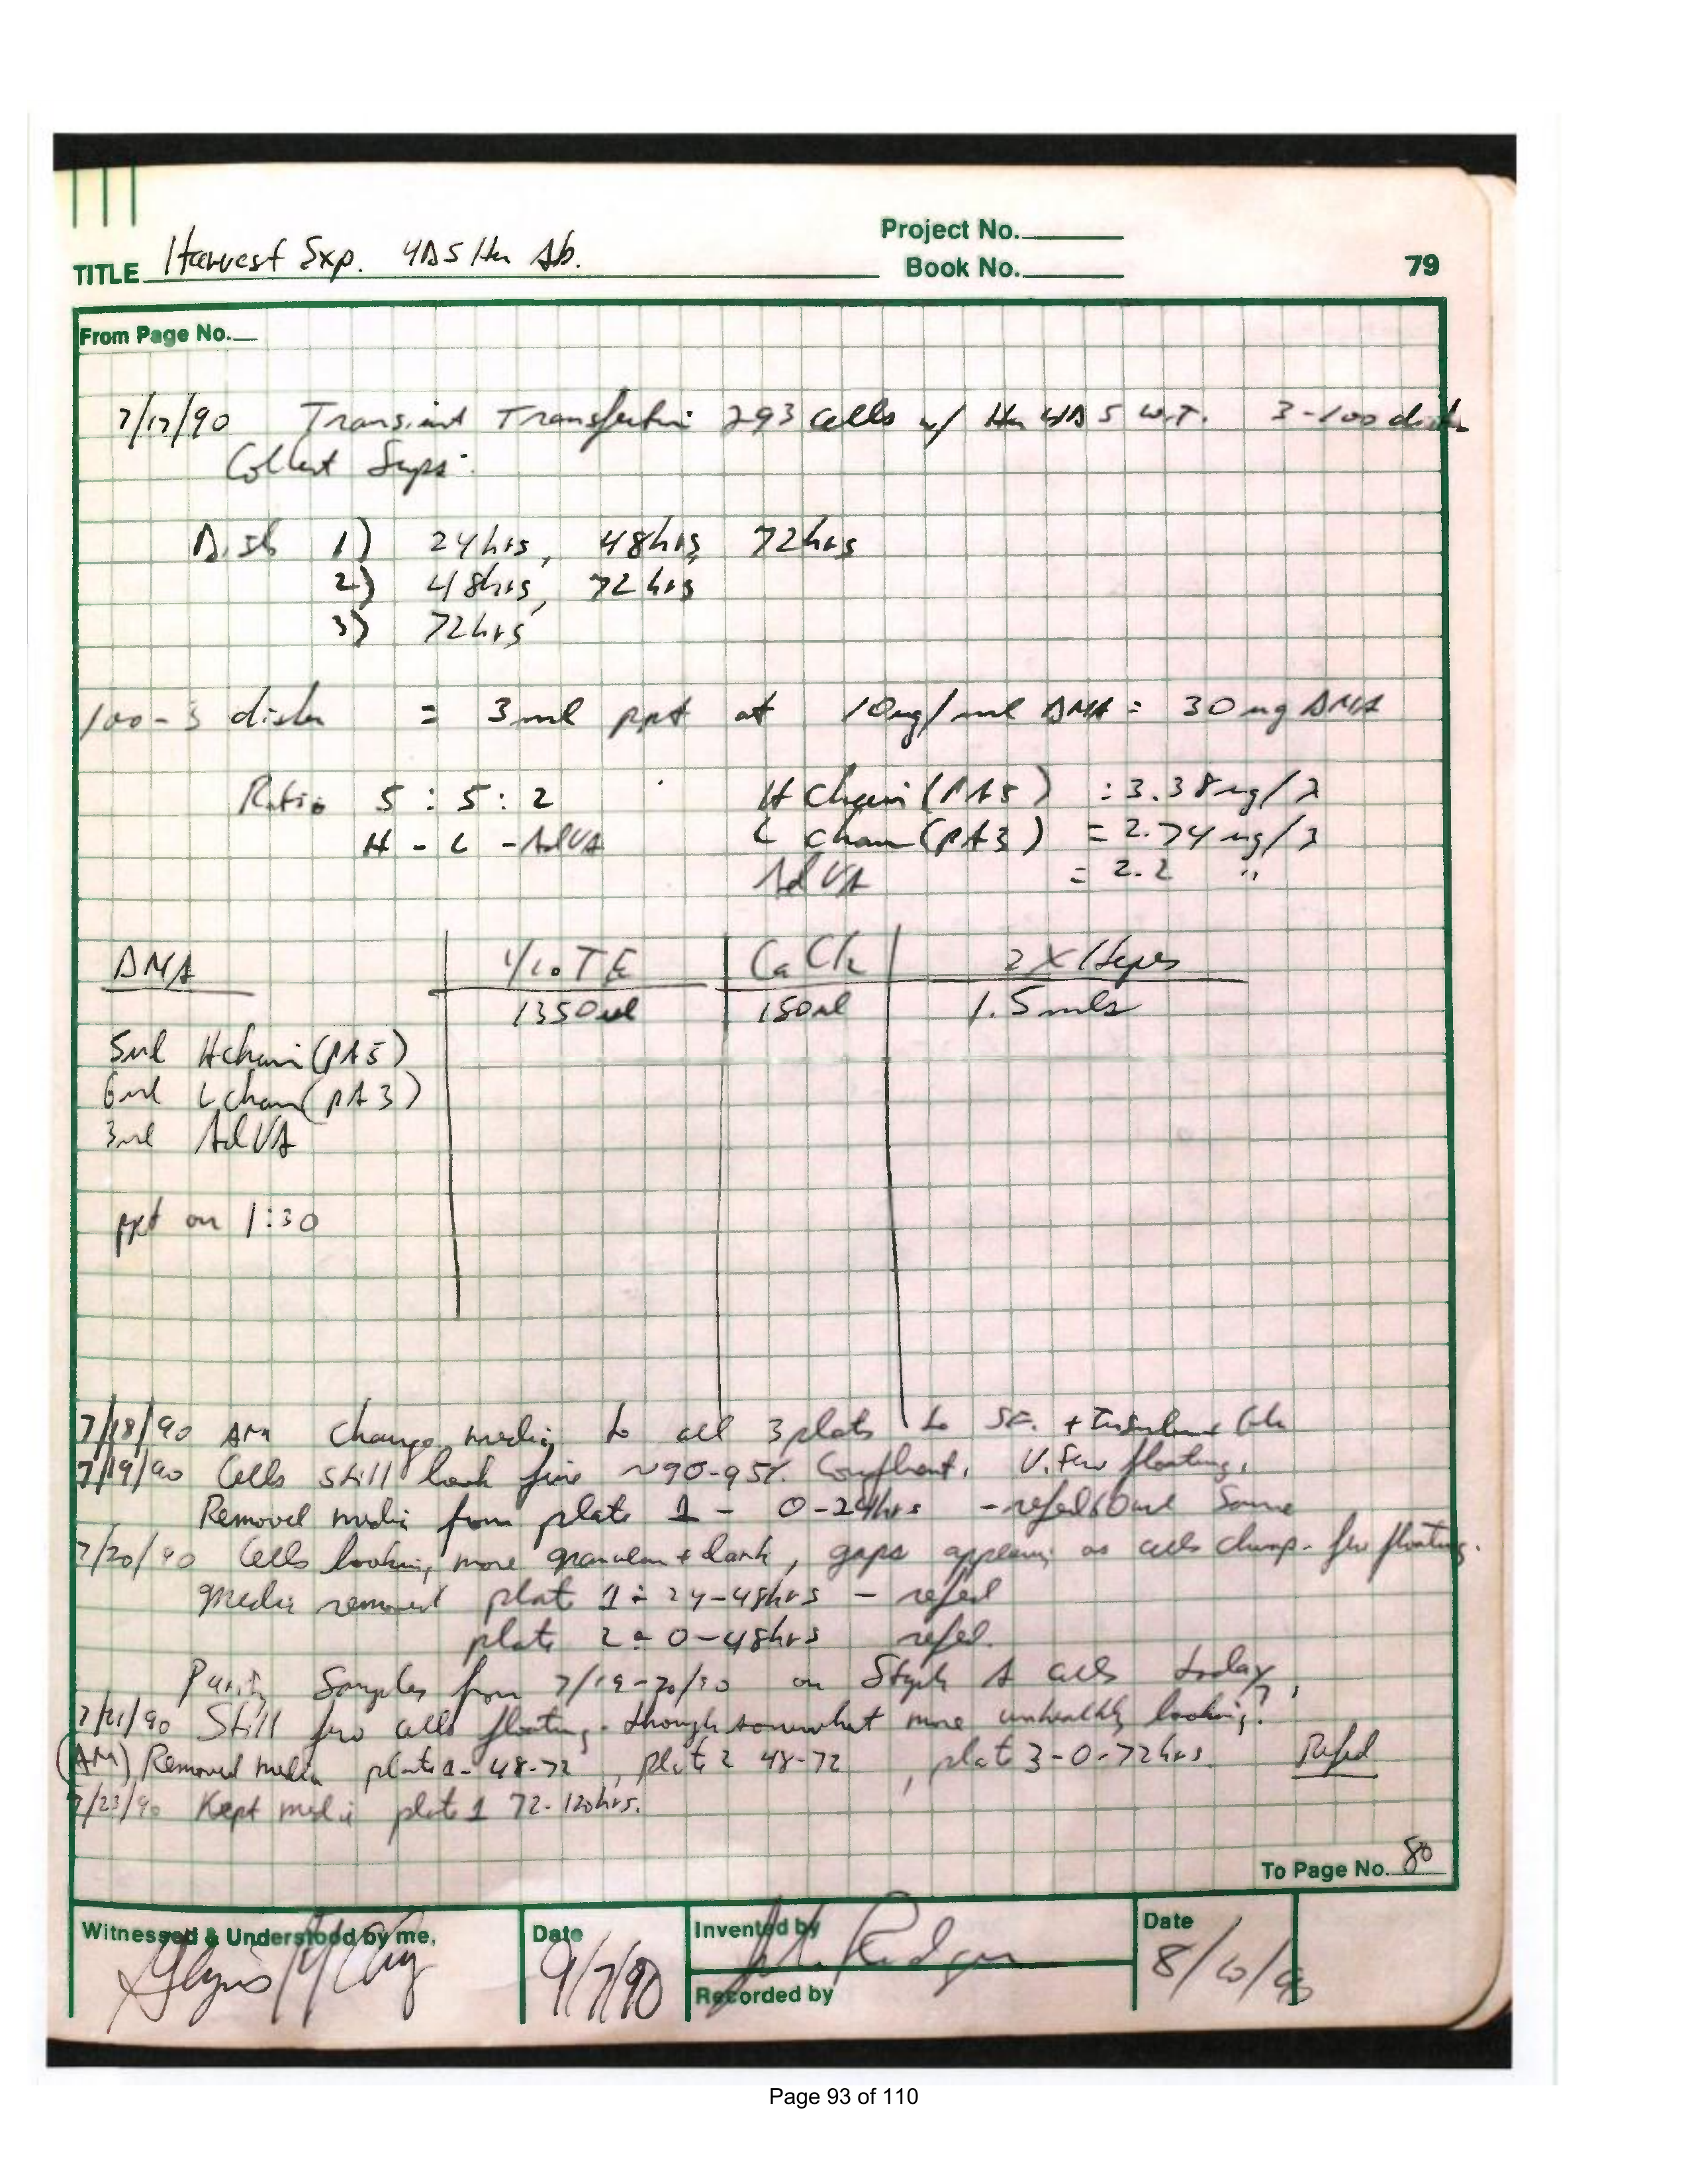 Project No.
TITLE Harvest Exp. 4D5 Hu Ab. Book No. 79
From Page No.
7/17/90 Transient Transfection 293 cells w/ Hu 4D5 w.T. 3-100 dishes
Collect Sups.
Dish 1) 24hrs, 48hrs, 72hrs
2) 48hrs, 72hrs
3) 72hrs
100-3 dishes = 3ml ppt at 10ug/ml DNA = 30ug DNA
Ratio 5 : 5 : 2 H Chain (pA5) : 3.38ug/λ
H - L - AdVA L chain (pA3) = 2.74ug/λ
AdVA = 2.2 "
DNA 1/10 TE CaCl2 2X Hepes
1350ul 150ul 1.5mls
5ul H chain (pA5)
6ul L chain (pA3)
3ul AdVA
ppt on 1:30
7/18/90 AM Change media to all 3 plates to SF. +
7/19/90 Cells still look fine ~90-95% Confluent. V. few floating.
Removed media from plate 1 - 0-24hrs - refed same
7/20/90 Cells looking more granular + dark, gaps appearing as cells clump. few floating.
Media removed plate 1 = 24-48hrs - refed
plate 2 = 0-48hrs refed.
Purify Samples from 7/19-20/90 on Staph A cells today.
7/21/90 Still few cells floating - though somewhat more unhealthy looking?
(AM) Removed media plate 1- 48-72, plate 2 48-72, plate 3-0-72hrs. Refed
7/23/90 Kept media plate 1 72-120hrs.
To Page No. 80
Witnessed & Understood by me, Date 9/7/90 Invented by Date 8/10/90
Recorded by
Page 93 of 110